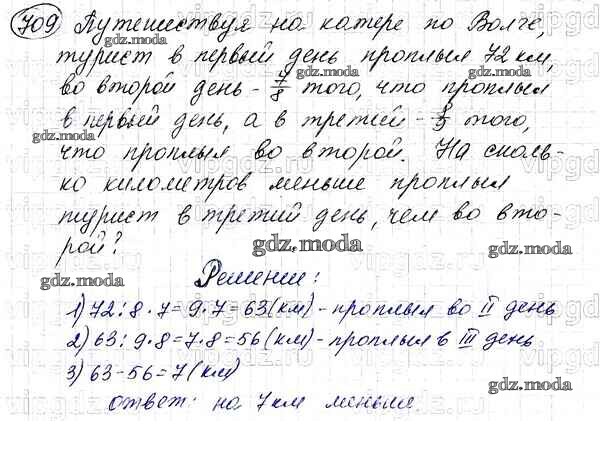 709 Путешествуя на катере по Волге,
турист в первый день проплыл 72 км,
во второй день - 7/8 того, что проплыл
в первый день, а в третий - 8/9 того,
что проплыл во второй. На сколь-
ко километров меньше проплыл
турист в третий день, чем во вто-
рой?
Решение:
1) 72:8·7=9·7=63(км)-проплыл во II день
2) 63:9·8=7·8=56(км)-проплыл в III день
3) 63-56=7(км)
ответ: на 7 км меньше.
gdz.moda
vipgdz.ru